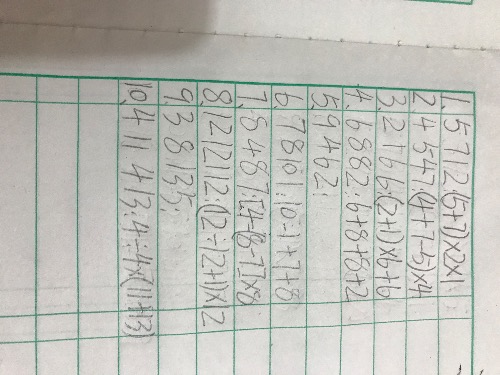 1. 5 7 1 2:(5+7)×2×1
2. 4 5 4 7:(4+7-5)×4
3. 2 1 6 6:(2+1)×6+6
4. 6 8 8 2:6+8+8+2
5. 9 4 6 2:
6. 7 8 10 1:10-1+7+8
7. 8 4 8 7:[4-(8-7)]×8
8. 12 12 1 12:(12÷12+1)×12
9. 3 8 13 5:
10. 4 11 4 13:4÷4×(11+13)